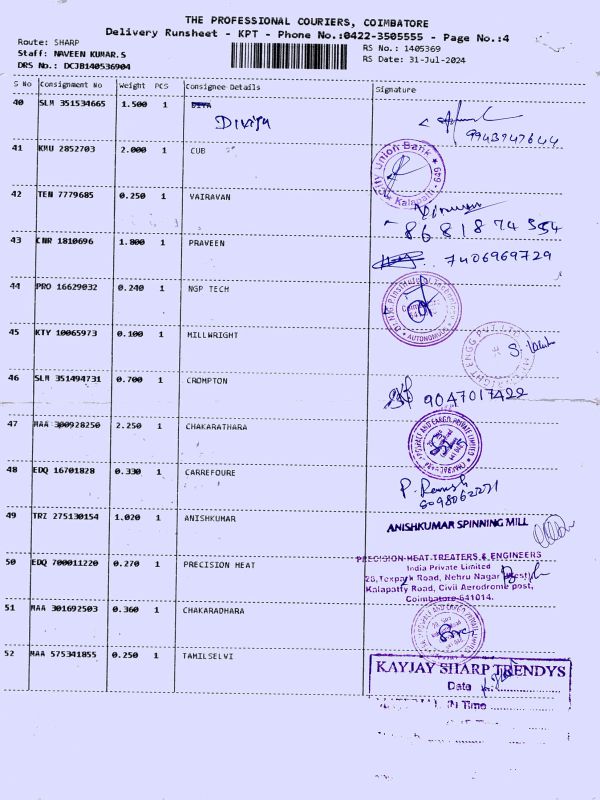 THE PROFESSIONAL COURIERS, COIMBATORE
Delivery Runsheet - KPT - Phone No.:0422-3505555 - Page No.:4
Route: SHARP
Staff: NAVEEN KUMAR.S
DRS No.: DCJB140536904
RS No.: 1405369
RS Date: 31-Jul-2024
S No Consignment No Weight PCS Consignee Details Signature
40 SLM 351534665 1.500 1 DIYA
Divya
9943747644
41 KMU 2852703 2.000 1 CUB
City Union Bank 649 Kalapatti
42 TEN 7779685 0.250 1 VAIRAVAN
8681874554
43 CNR 1810696 1.800 1 PRAVEEN
7406969729
44 PRO 16629032 0.240 1 NGP TECH
AUTONOMOUS
45 KTY 10065973 0.100 1 MILLWRIGHT
ENGG PVT LTD
46 SLM 351494731 0.700 1 CROMPTON
9047017422
47 MAA 300928250 2.250 1 CHAKARATHARA
AND CARGO PRIVATE LIMITED
48 EDQ 16701828 0.330 1 CARREFOURE
P. Ramesh
8098062271
49 TRZ 275130154 1.020 1 ANISHKUMAR
ANISHKUMAR SPINNING MILL
50 EDQ 700011220 0.270 1 PRECISION HEAT
PRECISION HEAT TREATERS & ENGINEERS
India Private Limited
28, Texpark Road, Nehru Nagar (West)
Kalapatty Road, Civil Aerodrome post,
Coimbatore-641014.
51 MAA 301692503 0.360 1 CHAKARADHARA
52 MAA 575341855 0.250 1 TAMILSELVI
KAYJAY SHARP TRENDYS
Date
IN Time